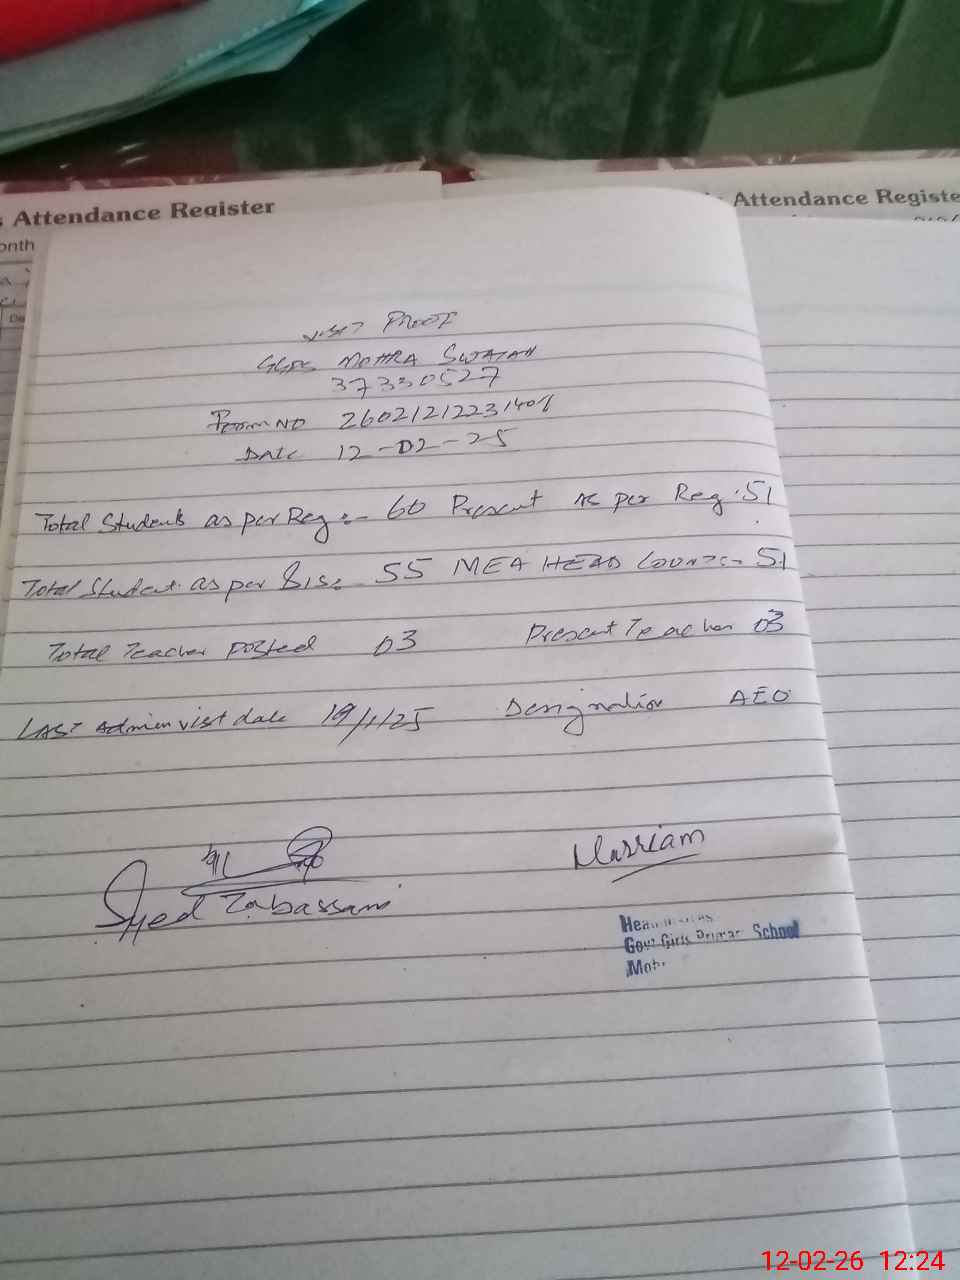 s Attendance Register
onth
s Attendance Registe
Visit Proof
GGPS MOHRA SWAIAH
37330527
Form NO 26021212231401
Date 12-02-25
Total Students as per Reg :- 60 Present as per Reg :51
Total Student as per Sis:- 55 MEA HEAD Count:- 51
Total Teacher posted 03 Present Teacher 03
LAST Admin visit date 19/11/25 Designation AEO
Syed Tabassam
Marriam
Govt Girls Primar School
12-02-26 12:24